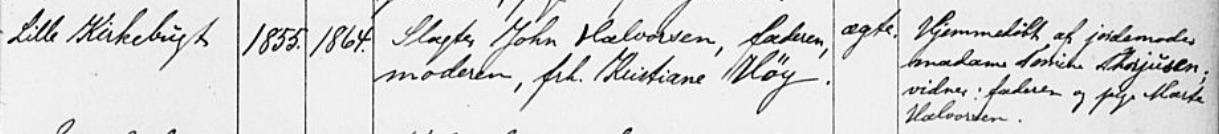 Lille Kirkebugt 1855. 1864. Slagter John Halvorsen, faderen, ægte. Hjemmedöbt af jordemoder
moderen, frk. Kristiane Höy. madame Tomine Thorjusen;
vidner: faderen og pige Marte
Halvorsen.